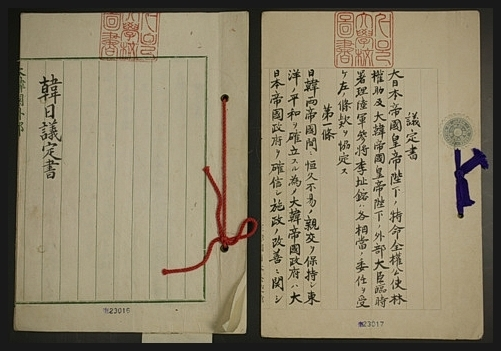 서울
大學校
圖書
韓日議定書
大韓國外部
奎23016
서울
大學校
圖書
議定書
大日本帝國皇帝陛下ノ特命全權公使林
權助及大韓帝國皇帝陛下ノ外部大臣臨時
署理陸軍參將李址鎔ハ各相當ノ委任ヲ受
ケ左ノ條款ヲ協定ス
第一條
日韓兩帝國間ニ恒久不易ノ親交ヲ保持シ東
洋ノ平和ヲ確立スル為メ大韓帝國政府ハ大
日本帝國政府ヲ確信シ施政ノ改善ニ關シ
奎23017